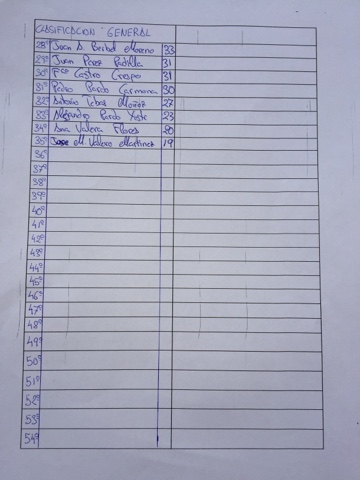 CLASIFICACION GENERAL
28º Juan D. Bribal Moreno 33
29º Juan Perez Padilla 31
30º Fco Castro Crespo 31
31º Pedro Pardo Carmona 30
32º Antonio Tebar Muñoz 27
33º Alejandro Pardo 23
34º Ana Valera Flores 20
35º Jose M Valero Martinez 19
36º
37º
38º
39º
40º
41º
42º
43º
44º
45º
46º
47º
48º
49º
50º
51º
52º
53º
54º